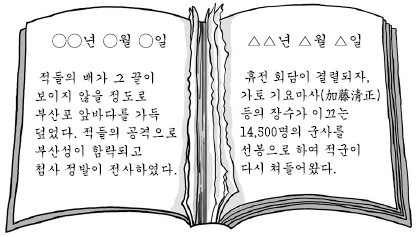 ○○년 ○월 ○일
적들의 배가 그 끝이
보이지 않을 정도로
부산포 앞바다를 가득
덮었다. 적들의 공격으로
부산성이 함락되고
첨사 정발이 전사하였다.
△△년 △월 △일
휴전 회담이 결렬되자,
가토 기요마사(加藤清正)
등의 장수가 이끄는
14,500명의 군사를
선봉으로 하여 적군이
다시 쳐들어왔다.